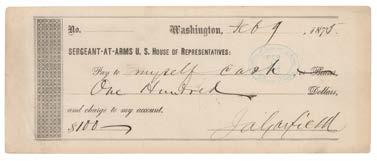 No. Washington, Feb 9 1875.
SERGEANT-AT-ARMS U. S. HOUSE OF REPRESENTATIVES:
Pay to myself cash or Bearer
One Hundred Dollars,
and charge to my account.
$100— J A Garfield